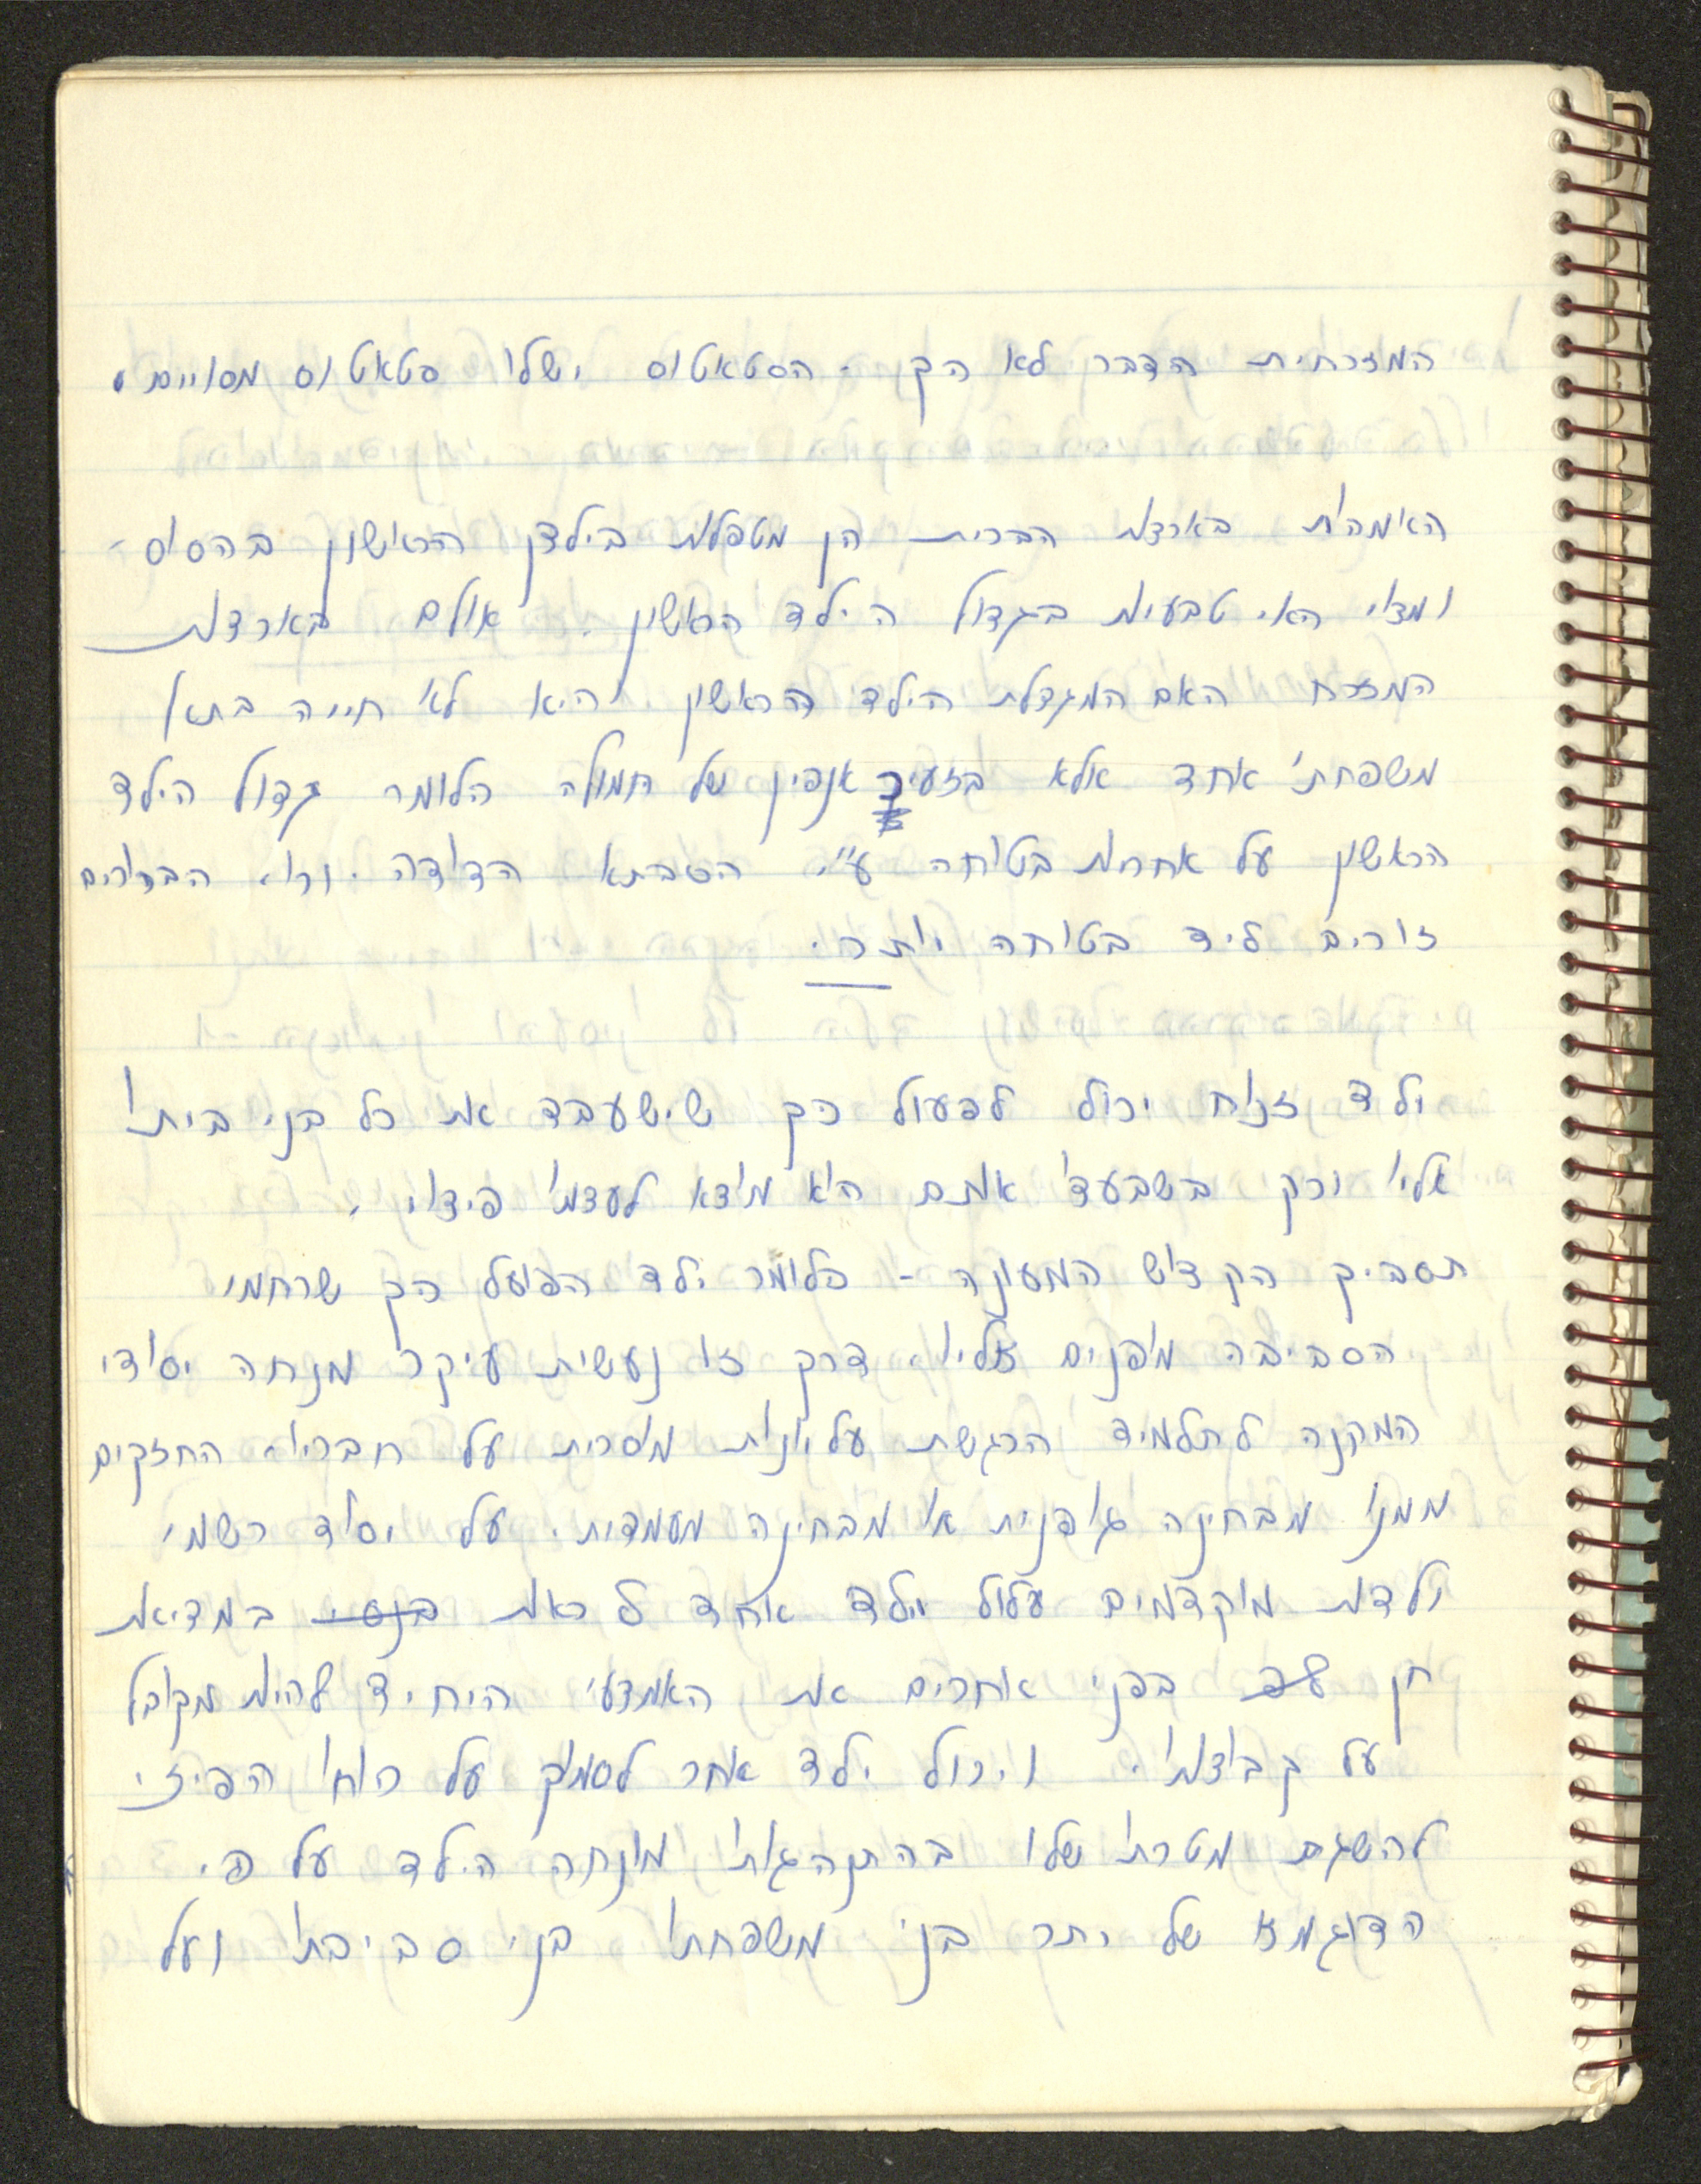 המזרחית הדבר לא כך. הסטאטוס ישלו סטאטוס מסויים.
האימהות בארצות הברית הן מטפלות בילדן הראשון בהסוס -
ומצוי האי טבעיות בגדול הילד הראשון. אולם בארצות
המזרח האם המגדלת הילד הראשון היא לא חייה בתא
משפחתי אחד אלא בזעיר אנפין של חמולה כלומר גדול הילד
הראשון על אחריות בטוחה ע"י הסבתא הדודה. וכו'. הברורים
זורים ליד בטוחה יותר.
ילד זנוח יכול לפעול כך שישעבד את כל בני ביתו
אליו ורק בשבעדו אותם הוא מוצא לעצמו פיצוי.
תסביך הקדוש המעונה - כלומר ילד הפועל כך שרחמי
הסביבה מופנים אליו. דרך זו נעשית עיקר מנחה יסודי
המקנה לתלמיד הרגשת עליונות מוסרית על חבריו. החזקים
ממנו מבחינה גופנית או מבחינה מעמדית. על יסוד רשמי
ילדות מוקדמים עלול ילד אחד לראות בנסי במציאת
חן בפני אחרים את האמצעי היחיד להיות מקובל
על קבוצתו. ויכול ילד אחר לסמוך על כוחו הפיזי
להשגת מטרתו שלו בהתנהגותו מונחה הילד על פי.
הדוגמא של יתר בני משפחתו בני סביבתו ועל